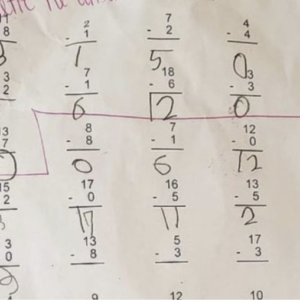 8 2 7 4
- 1 - 2 - 4
1 5 0
3 7 18 3
2 - 1 - 6 - 3
6 2 0
3 8 7 12
7 - 8 - 1 - 0
0 6 12
15 17 16 13
2 - 0 - 5 - 5
17 11 2
3 13 5 17
0 - 8 - 3 - 3
9 12 10